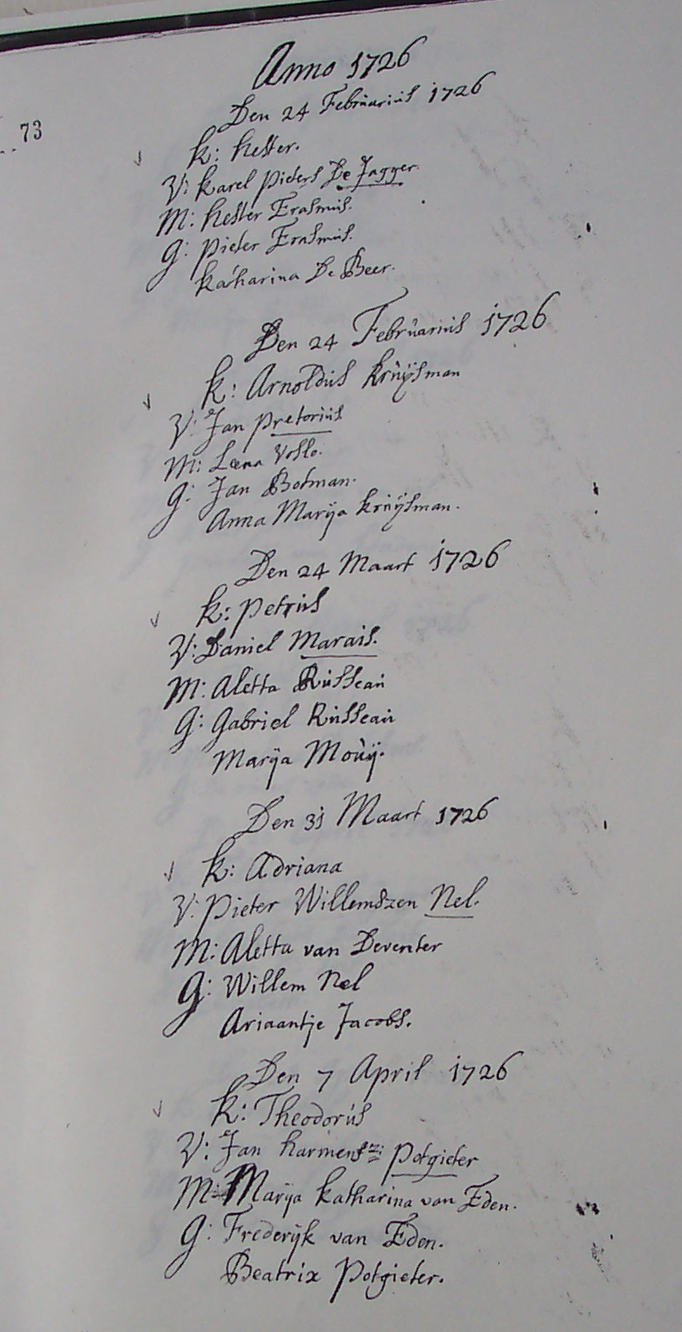 Anno 1726
Den 24 Februarius 1726
73
K: Hester.
V: Karel Pieters De Jagger.
M: Hester Erasmus.
G: Pieter Erasmus.
Katharina De Beer.
Den 24 Februarius 1726
K: Arnoldus Kruijsman
V: Jan Pretorius
M: Leena
G: Jan Botman.
Anna Marija Kruijsman.
Den 24 Maart 1726
K: Petrus
V: Daniel Marais.
M: Aletta Russeau
G: Gabriel Russeau
Marija Mouij.
Den 31 Maart 1726
K: Adriana
V: Pieter Willemszen Nel.
M: Aletta van Deventer
G: Willem Nel
Ariaantje Jacobs.
Den 7 April 1726
K: Theodorus
V: Jan Harmensz: Potgieter
M: Marija Katharina van Eden.
G: Frederijk van Eden.
Beatrix Potgieter.